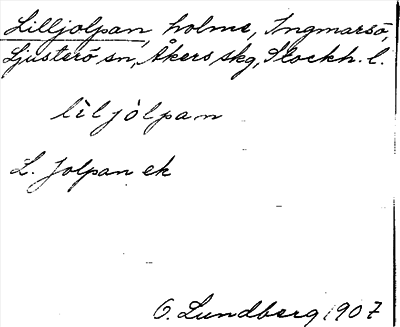 Lilljolpan, holme, Ingmarsö,
Ljusterö sn, Åkers skg, Stockh. l.
lìljòlpan
L. Jolpan ek
O. Lundberg 1907